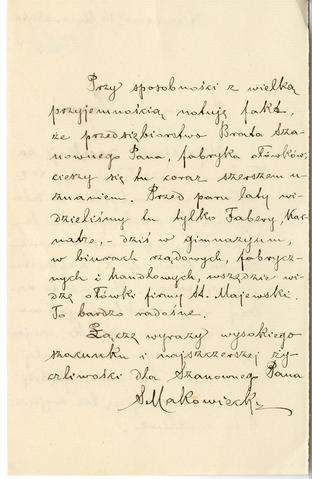 Przy sposobności z wielką
przyjemnością notuję fakt,
że przedsiębiorstwo Brata Sza-
nownego Pana, fabryka ołówków,
cieszy się tu coraz szerszem u-
znaniem. Przed paru laty wi-
dzieliśmy tu tylko Fabery,
- dziś w gimnazyum,
w biurach rządowych, fabrycz-
nych i handlowych, wszędzie wi-
dzę ołówki firmy St. Majewski.
To bardzo radosne.
Łączę wyrazy wysokiego
szacunku i najszczerszej ży-
czliwości dla Szanownego Pana
SMakowiecki